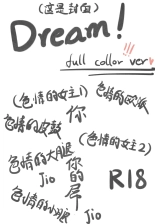 (这是封面)
Dream!
full collor ver
(色情的女主1)
色情的
色情的
你
(色情的女主2)
色情的大腿
你
的
屌
Jio
R18
色情的小腿
Jio